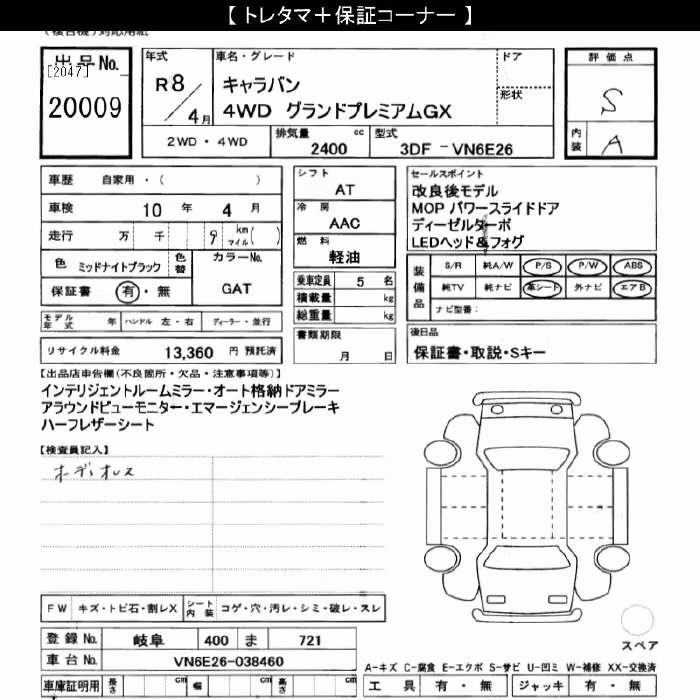 【 トレタマ＋保証コーナー 】
出品No.
[2047]
20009
年式
R8
4月
車名・グレード
キャラバン
4WD グランドプレミアムGX
ドア
形状
2WD・4WD
排気量
2400 cc
型式
3DF－VN6E26
評価点
S
内装
A
車歴 自家用・( )
車検 10 年 4 月
走行 万 千 9 kmマイル( )
色 ミッドナイトブラック
色替
カラーNo.
GAT
保証書 有・無
モデル年式 年 ハンドル 左・右 ディーラー・並行
リサイクル料金 13,360 円 預託済
シフト
AT
冷房
AAC
燃料
軽油
乗車定員 5 名
積載量 kg
総重量 kg
書類期限
月 日
セールスポイント
改良後モデル
MOP パワースライドドア
ディーゼルターボ
LEDヘッド&フォグ
装備品
S/R 純A/W P/S P/W ABS
純TV 純ナビ 革シート 外ナビ エアB
ナビ型番：
後日品
保証書・取説・Sキー
【出品店申告欄(不良箇所・欠品・注意事項等)】
インテリジェントルームミラー・オート格納ドアミラー
アラウンドビューモニター・エマージェンシーブレーキ
ハーフレザーシート
【検査員記入】
オーディオレス
FW キズ・トビ石・割レX シート内装 コゲ・穴・汚レ・シミ・破レ・スレ
登録No. 岐阜 400 ま 721
車台No. VN6E26-038460
車庫証明用 長さ cm 幅 cm 高さ cm
スペア
A-キズ C-腐食 E-エクボ S-サビ U-凹ミ W-補修 XX-交換済
工具 有・無 ジャッキ 有・無